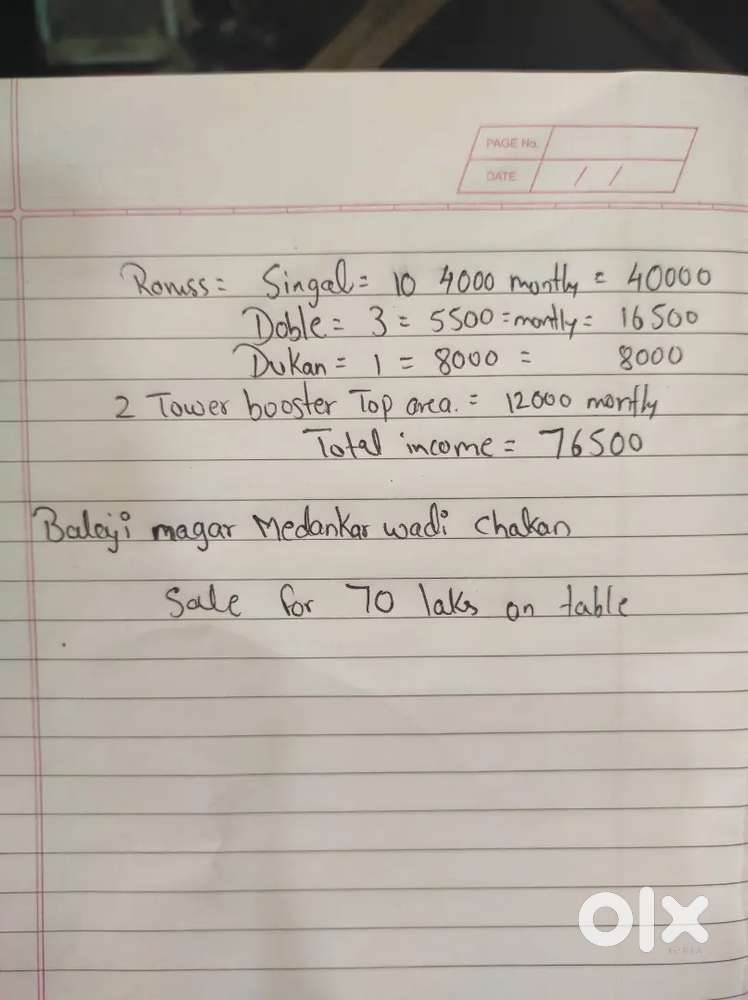 PAGE No.
DATE / /
Romss = Singal = 10 4000 montly = 40000
Doble = 3 = 5500 = montly = 16500
Dukan = 1 = 8000 = 8000
2 Tower booster Top area. = 12000 montly
Total income = 76500
Balaji magar Medankar wadi chakan
Sale for 70 laks on table
olx
INDIA